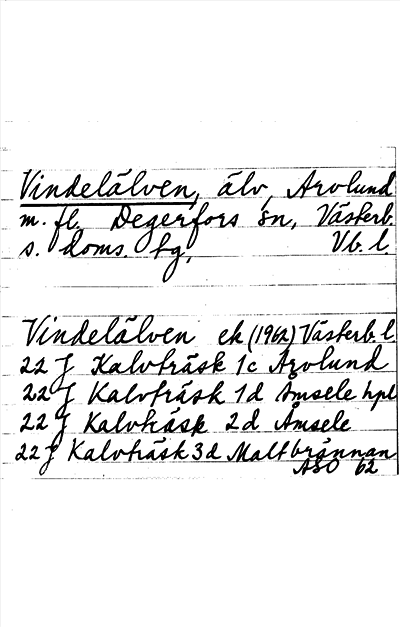 Vindelälven, älv, Arvlund
m. fl. Degerfors sn, Västerb.
s. doms. hg, Vb. l.
Vindelälven ek (1962) Västerb. l.
22 J Kalvträsk 1c Arvlund
22 J Kalvträsk 1d Åmsele hpl
22 J Kalvträsk 2d Åmsele
22 J Kalvträsk 3d Maltbrännan
ASO 62